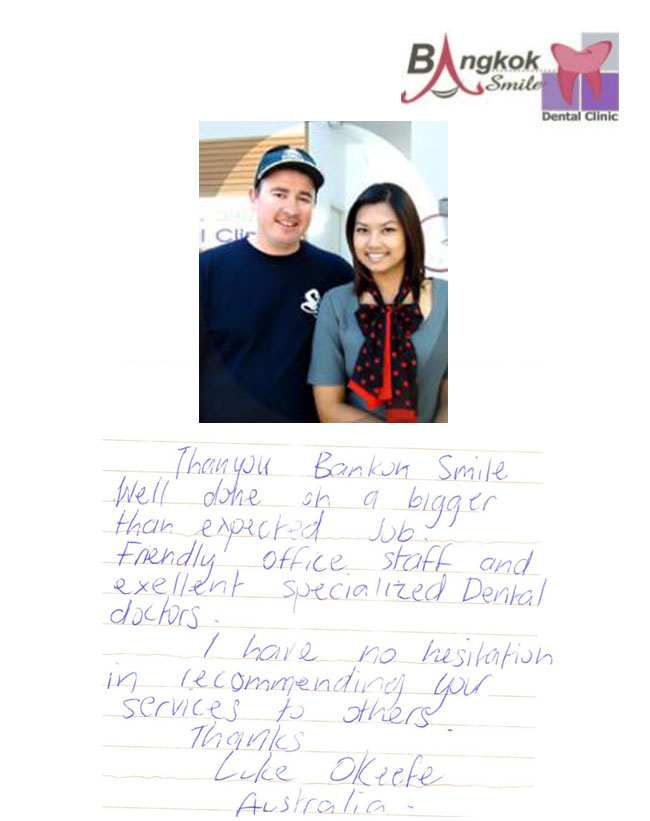 BAngkok
Smile
Dental Clinic
l Clin
Thanyou Bankok Smile
Well done on a bigger
than expected job.
Friendly office staff and
exellent specialized Dental
doctors.
I have no hesitation
in recommending your
services to others.
Thanks
Luke OKeefe
Australia.